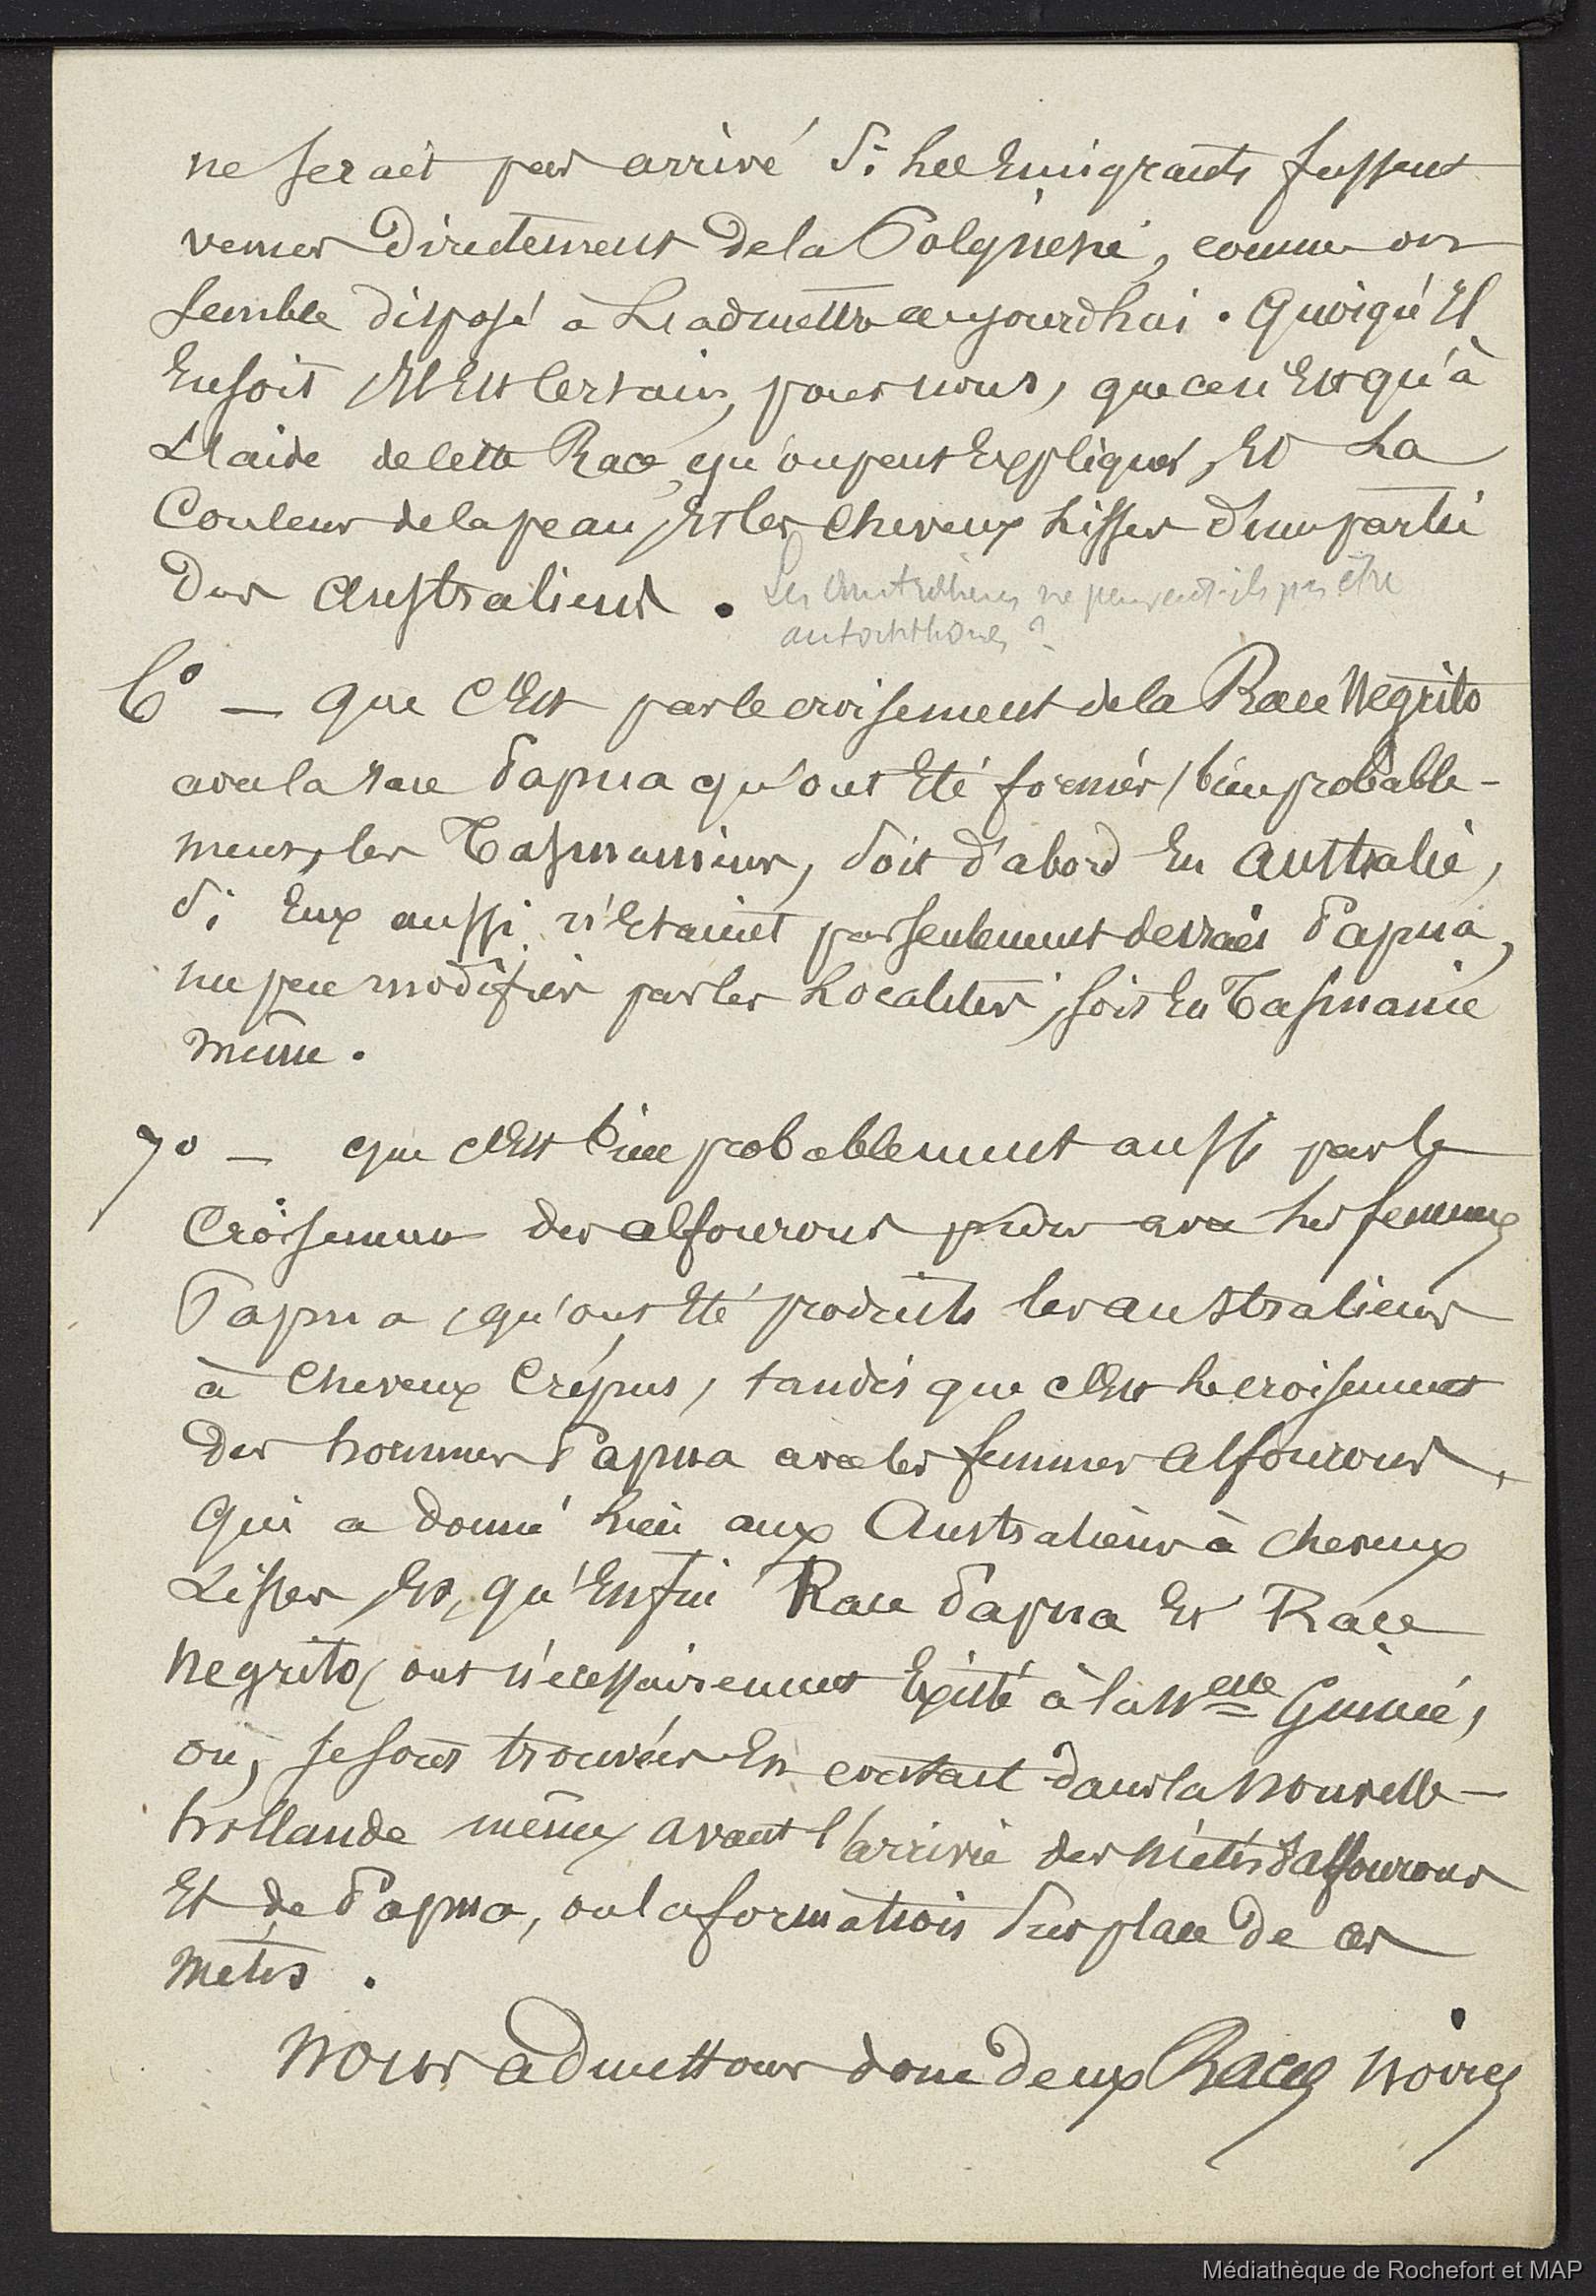 ne serait pas arrivé si les Emigrants fussent
venus Directement de la Polynésie, comme on
semble disposé à L'admettre aujourdhui. Quoiqu'Il
En soit, Il Est Certain, pour nous, que ce n'Est qu'à
L'aide de Cette Race, qu'on peut Expliquer, Et La
Couleur de la peau, Et les Cheveux Lisses d'une partie
Des Australiens.
Les Australiens ne peuvent-ils pas être
autochthones ?
6° — que C'Est par le croisement de la Race Négrito
avec la race Papua qu'ont Eté formés, bien probable-
ment, les Tasmaniens, soit d'abord En Australie,
si Eux aussi n'Etaient pas seulement de vrais Papua,
un peu modifiés par les Localités, soit En Tasmanie
même.
7° — que C'Est bien probablement aussi par le
Croisement des alfourous purs avec les femmes
Papua, qu'ont Eté produits les australiens
à Cheveux Crépus, tandis que C'Est le croisement
Des hommes Papua avec les femmes alfourous,
Qui a donné lieu aux Australiens à cheveux
Lisses, Et, qu'Enfin Race Papua Et Race
Negrito, ont nécessairement Existé à la Nelle Guinée,
ou, se sont trouvées En contact dans la Nouvelle-
hollande même, avant l'arrivée des Métis d'alfourous
Et de Papua, ou la formation sur place de ces
Métis.
Nous admettons donc deux Races Noires
Médiathèque de Rochefort et MAP